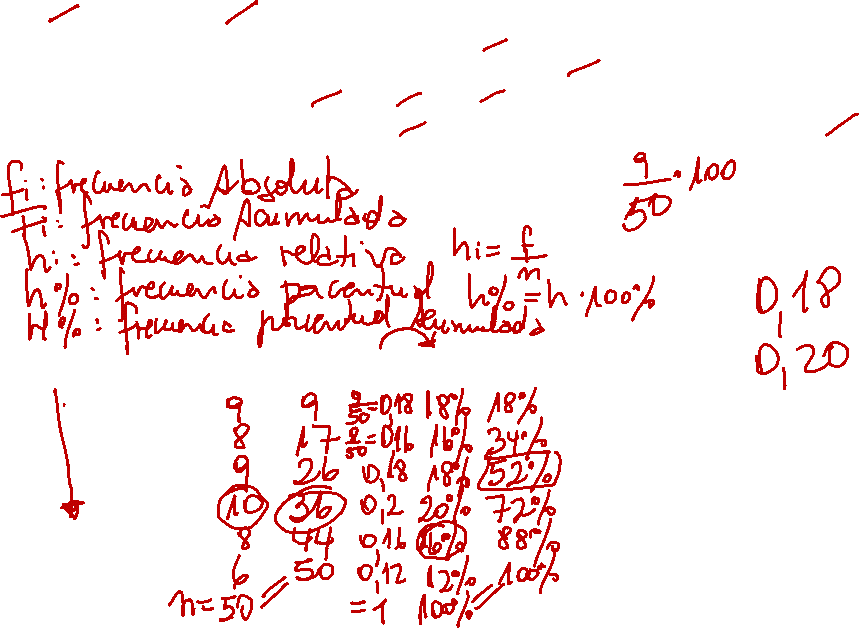 fi: frecuencia Absoluta
Fi: frecuencia Acumulada
hi: frecuencia relativa
h%: frecuencia porcentual
H%: frecuencia porcentual Acumulada
9/50 · 100
hi = f/n
h% = h · 100%
0,18
0,20
9 9 9/50=0,18 18% 18%
8 17 8/50=0,16 16% 34%
9 26 0,18 18% 52%
10 36 0,2 20% 72%
8 44 0,16 16% 88%
6 50 0,12 12% 100%
n=50 =1 100%